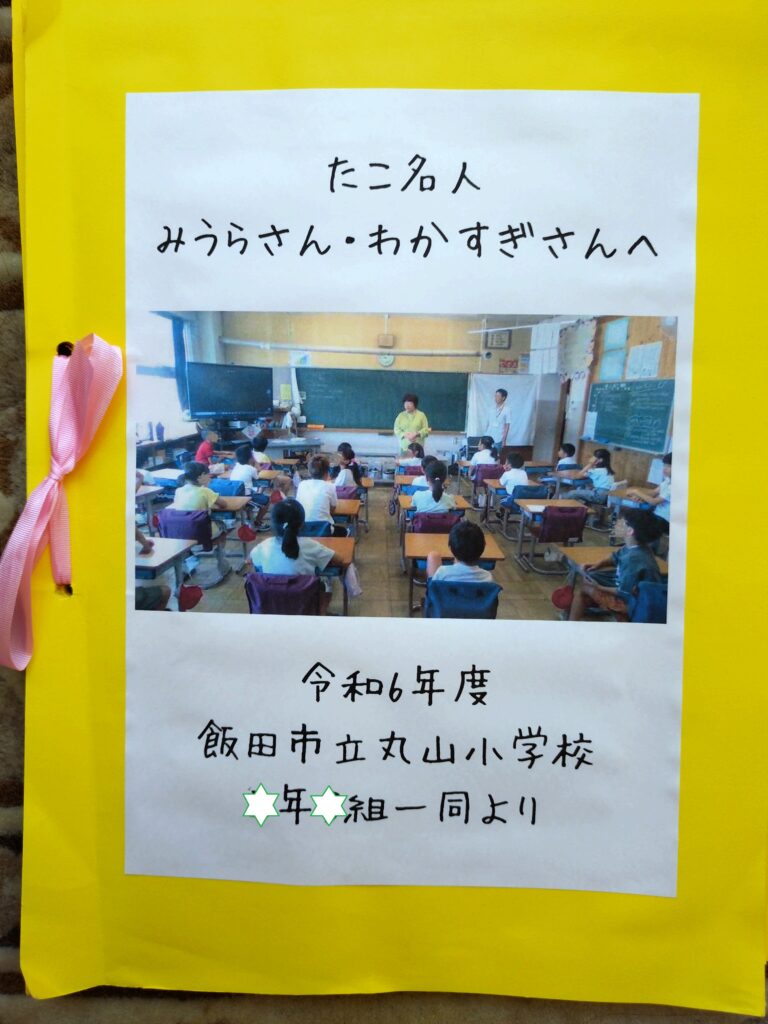 たこ名人
みうらさん・わかすぎさんへ
令和6年度
飯田市立丸山小学校
年 組一同より